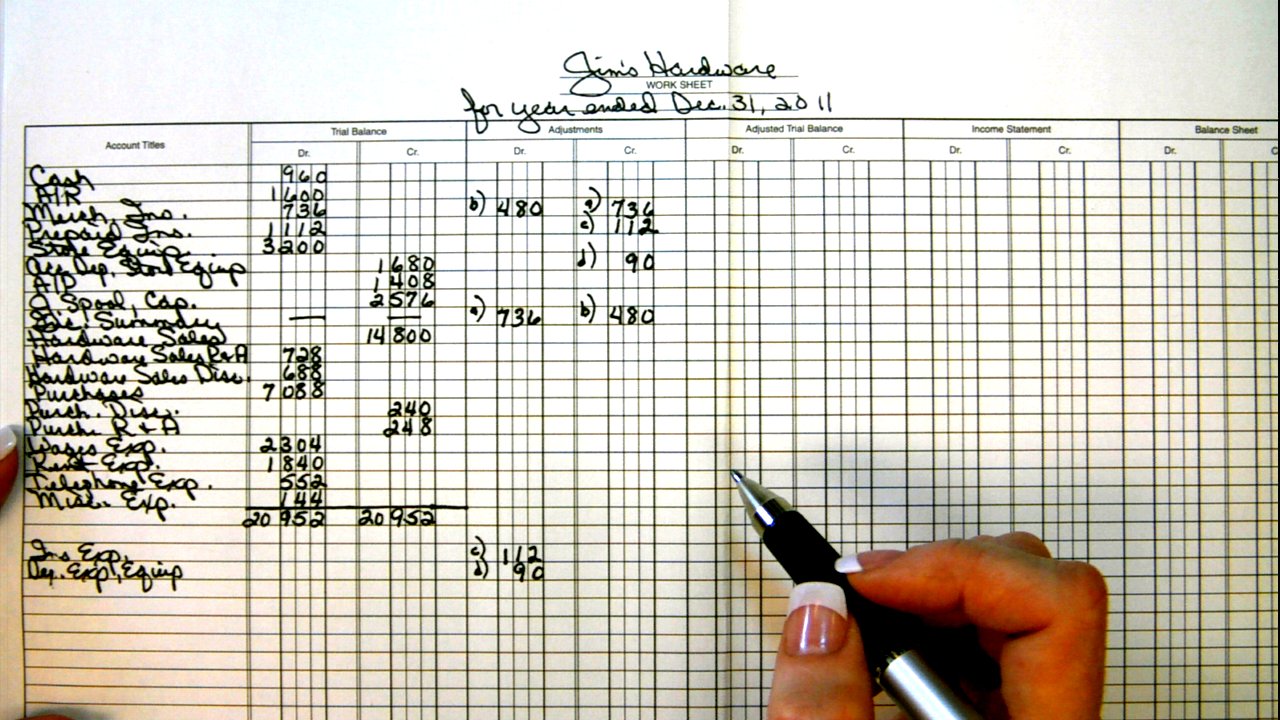 Jim's Hardware
WORK SHEET
for year ended Dec. 31, 2011
Account Titles Trial Balance Adjustments Adjusted Trial Balance Income Statement Balance Sheet
Dr. Cr. Dr. Cr. Dr. Cr. Dr. Cr. Dr. C
Cash 960
A/R 1 600
Merch. Inv. 736 b) 480 a) 736
Prepaid Ins. 1 112 c) 112
Store Equip. 3200
Acc. Dep., Store Equip 1 680 d) 90
A/P 1 408
J. Spool, Cap. 2576
Inc. Summary — — a) 736 b) 480
Hardware Sales 14 800
Hardware Sales R&A 728
Hardware Sales Disc. 688
Purchases 7 088
Purch. Disc. 240
Purch. R & A 248
Wages Exp. 2304
Rent Exp. 1 840
Telephone Exp. 552
Misc. Exp. 144
20 952 20 952
Ins. Exp. c) 112
Dep. Exp., Equip d) 90